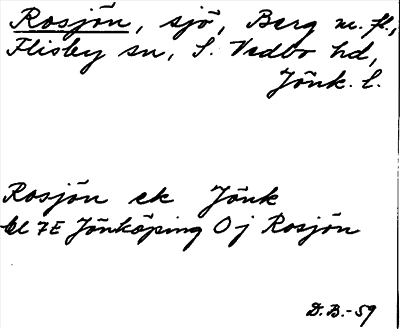 Rosjön, sjö, Berg m.fl.,
Flisby sn, S. Vedbo hd,
Jönk. l.
Rosjön ek Jönk
bl 7E Jönköping Oj Rosjön
D.B.-59